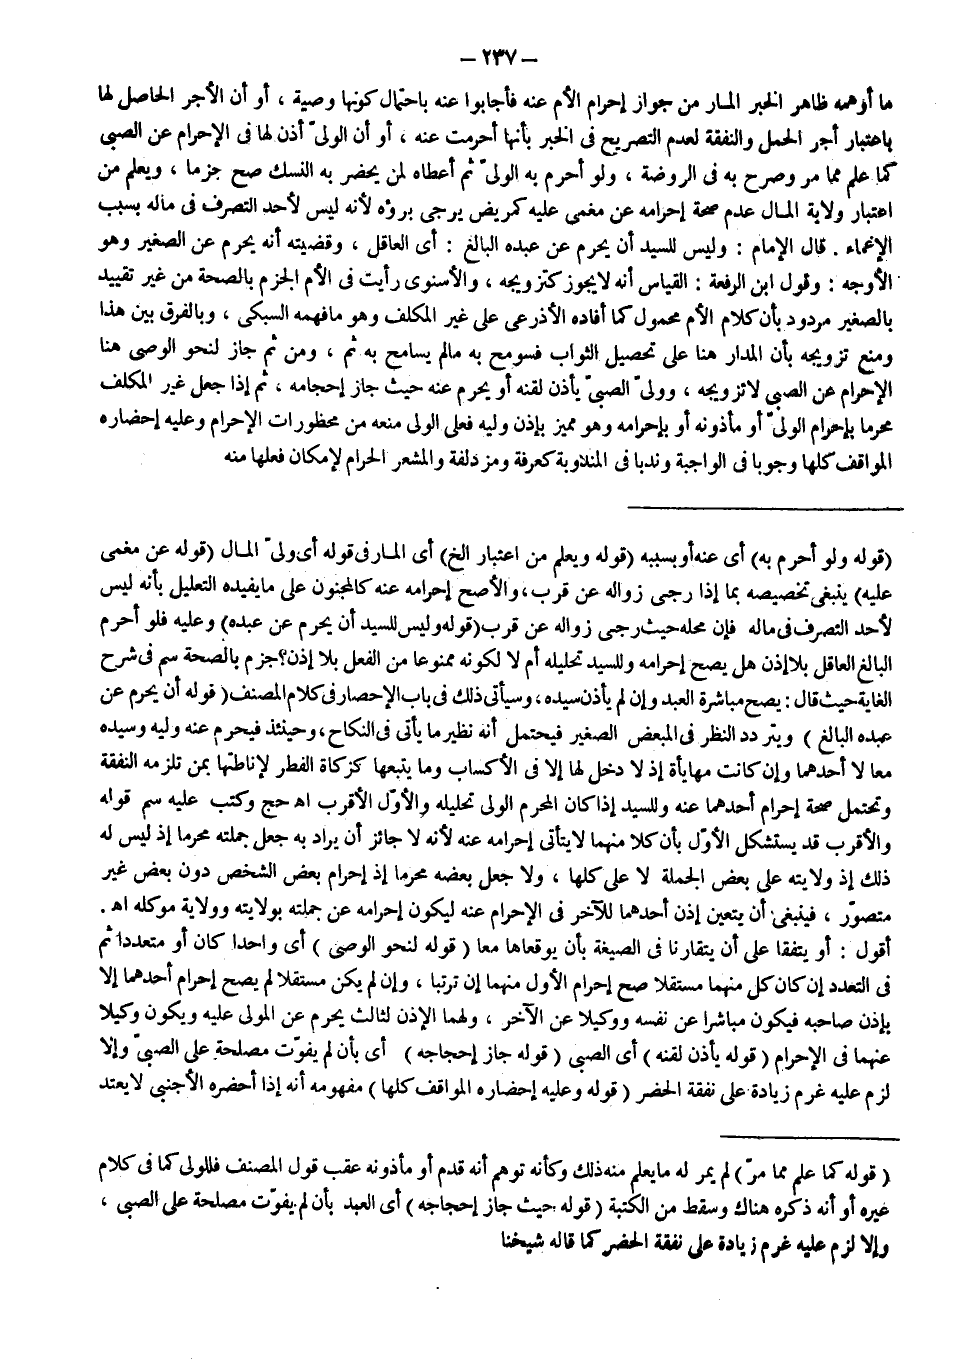 — ٢٣٧ —
ما أوهمه ظاهر الخبر المـار من جواز إحرام الأم عنه فأجابوا عنه باحتمال كونها وصية ، أو أن الأجر الحاصل لها
باعتبار أجر الحمل والنفقة لعدم التصريح فى الخبر بأنها أحرمت عنه ، أو أن الولىّ أذن لها فى الإحرام عن الصبى
كما علم مما مر وصرح به فى الروضة ، ولو أحرم به الولىّ ثم أعطاه لمن يحضر به النسك صح جزما ، ويعلم من
اعتبار ولاية المـال عدم صحة إحرامه عن مغمى عليه كمريض يرجى برؤه لأنه ليس لأحد التصرف فى ماله بسبب
الإغماء . قال الإمام : وليس للسيد أن يحرم عن عبده البالغ : أى العاقل ، وقضيته أنه يحرم عن الصغير وهو
الأوجه : وقول ابن الرفعة : القياس أنه لايجوز كتزويجه ، والأسنوى رأيت فى الأم الجزم بالصحة من غير تقييد
بالصغير مردود بأن كلام الأم محمول كما أفاده الأذرعى على غير المكلف وهو مافهمه السبكى ، وبالفرق بين هذا
ومنع تزويجه بأن المدار هنا على تحصيل الثواب فسومح به مالم يسامح به ثم ، ومن ثم جاز لنحو الوصى هنا
الإحرام عن الصبى لاتزويجه ، وولىّ الصبىّ يأذن لقنه أو يحرم عنه حيث جاز إحجامه ، ثم إذا جعل غير المكلف
محرما بإحرام الولىّ أو مأذونه أو بإحرامه وهو مميز بإذن وليه فعلى الولى منعه من محظورات الإحرام وعليه إحضاره
المواقف كلها وجوبا فى الواجبة وندبا فى المندوبة كعرفة ومزدلفة والمشعر الحرام لإمكان فعلها منه
(قوله ولو أحرم به) أى عنه أو بسببه (قوله ويعلم من اعتبار الخ) أى المـار فى قوله أى ولىّ المـال (قوله عن مغمى
عليه) ينبغى تخصيصه بما إذا رجى زواله عن قرب، والأصح إحرامه عنه كالمجنون على مايفيده التعليل بأنه ليس
لأحد التصرف فى ماله فإن محله حيث رجى زواله عن قرب (قوله وليس للسيد أن يحرم عن عبده) وعليه فلو أحرم
البالغ العاقل بلا إذن هل يصح إحرامه وللسيد تحليله أم لا لكونه ممنوعا من الفعل بلا إذن؟ جزم بالصحة سم فى شرح
الغاية حيث قال : يصح مباشرة العبد وإن لم يأذن سيده ، وسيأتى ذلك فى باب الإحصار فى كلام المصنف ( قوله أن يحرم عن
عبده البالغ ) ويتردد النظر فى المبعض الصغير فيحتمل أنه نظير ما يأتى فى النكاح ، وحينئذ فيحرم عنه وليه وسيده
معا لا أحدهما وإن كانت مهايأة إذ لا دخل لها إلا فى الأكساب وما يتبعها كزكاة الفطر لإناطتها بمن تلزمه النفقة
وتحتمل صحة إحرام أحدهما عنه وللسيد إذا كان المحرم الولى تحليله والأوّل الأقرب اهـ حج وكتب عليه سم قوله
والأقرب قد يستشكل الأوّل بأن كلا منهما لايتأتى إحرامه عنه لأنه لا جائز أن يراد به جعل جملته محرما إذ ليس له
ذلك إذ ولايته على بعض الجملة لا على كلها ، ولا جعل بعضه محرما إذ إحرام بعض الشخص دون بعض غير
متصوّر ، فينبغى أن يتعين إذن أحدهما للآخر فى الإحرام عنه ليكون إحرامه عن جملته بولايته وولاية موكله اهـ .
أقول : أو يتفقا على أن يتقارنا فى الصيغة بأن يوقعاها معا ( قوله لنحو الوصى ) أى واحدا كان أو متعددا ثم
فى التعدد إن كان كل منهما مستقلا صح إحرام الأول منهما إن ترتبا ، وإن لم يكن مستقلا لم يصح إحرام أحدهما إلا
بإذن صاحبه فيكون مباشرا عن نفسه ووكيلا عن الآخر ، ولهما الإذن لثالث يحرم عن المولى عليه ويكون وكيلا
عنهما فى الإحرام ( قوله يأذن لقنه ) أى الصبى ( قوله جاز إحجاجه ) أى بأن لم يفوّت مصلحة على الصبىّ وإلا
لزم عليه غرم زيادة على نفقة الحضر ( قوله وعليه إحضاره المواقف كلها ) مفهومه أنه إذا أحضره الأجنبى لايعتد
( قوله كما علم مما مرّ ) لم يمر له مايعلم منه ذلك وكأنه توهم أنه قدم أو مأذونه عقب قول المصنف فللولى كما فى كلام
غيره أو أنه ذكره هناك وسقط من الكتبة ( قوله حيث جاز إحجاجه ) أى العبد بأن لم يفوّت مصلحة على الصبى ،
وإلا لزم عليه غرم زيادة على نفقة الحضر كما قاله شيخنا